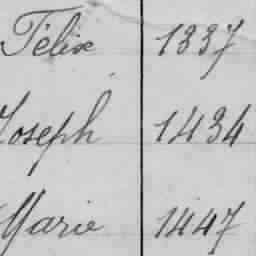 Félix 1337
Joseph 1434
Marie 1447